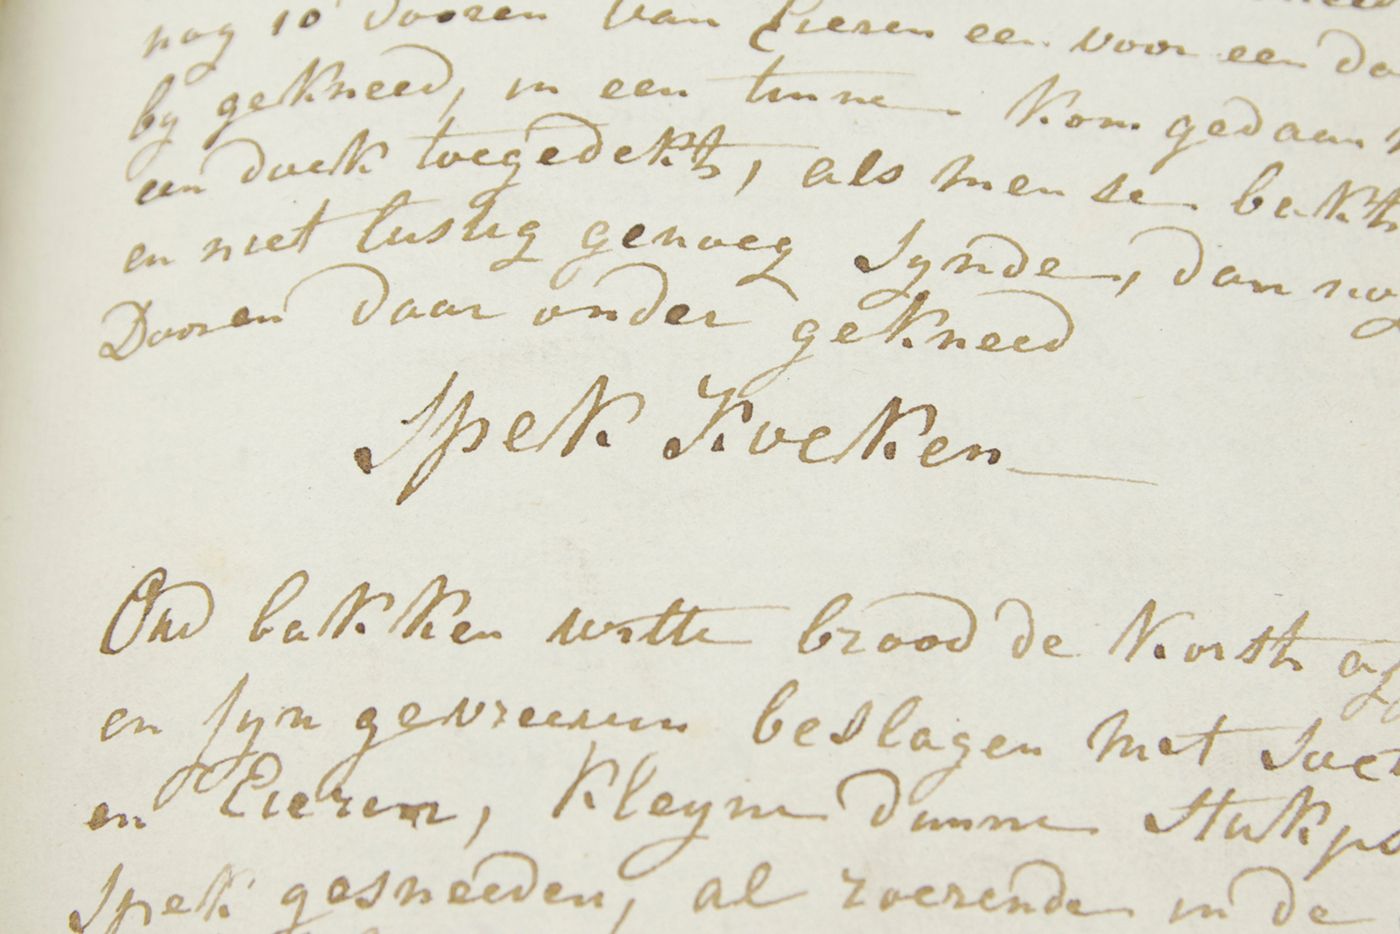 nog 10 dooren van Eieren een voor een
by gekneed, in een tinne kom gedaan
een doek toegedekt, als men se bakt
en niet lustig genoeg synde, dan nog
Dooren daar onder gekneed
Spek Koeken
Oud bakken witte brood de korst
en fyn gevreeven beslagen met
en Eieren, kleyne dunne
spek gesneeden, al roerende in de